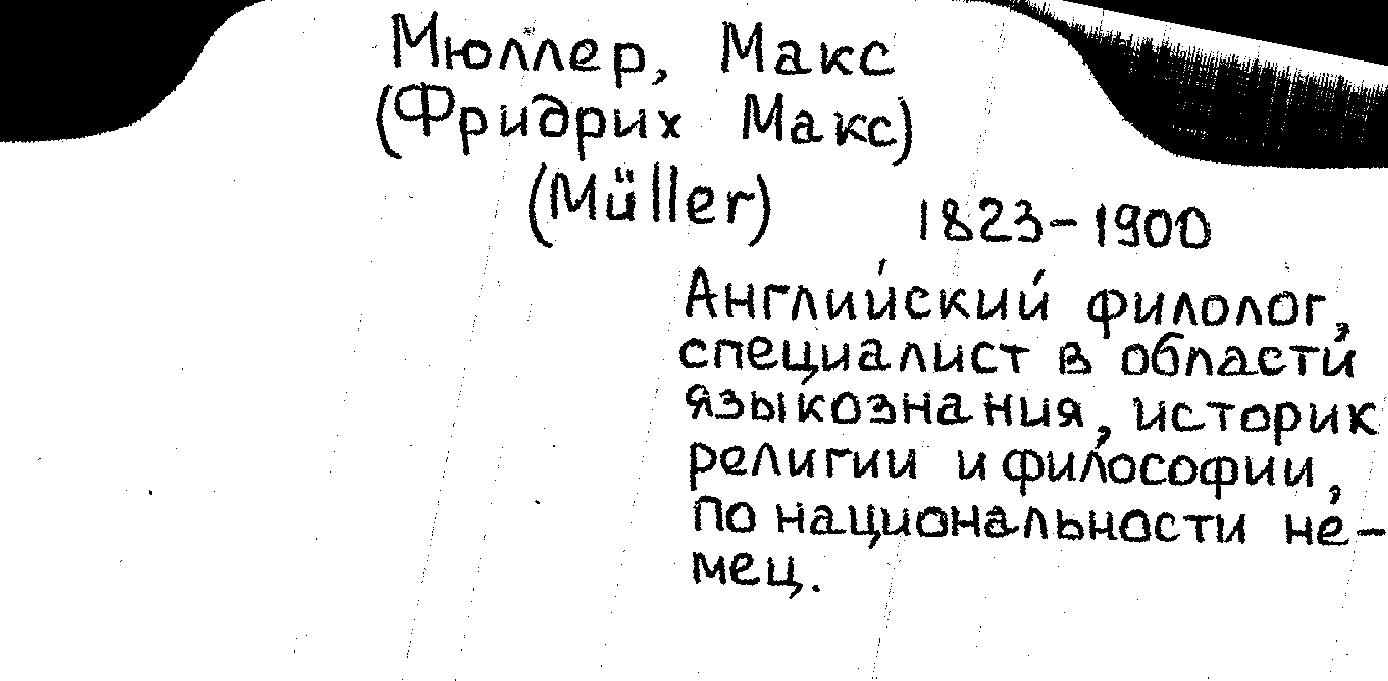 Мюллер, Макс
(Фридрих Макс)
(Müller) 1823-1900
Английский филолог,
специалист в области
языкознания, историк
религии и философии,
по национальности не-
мец.